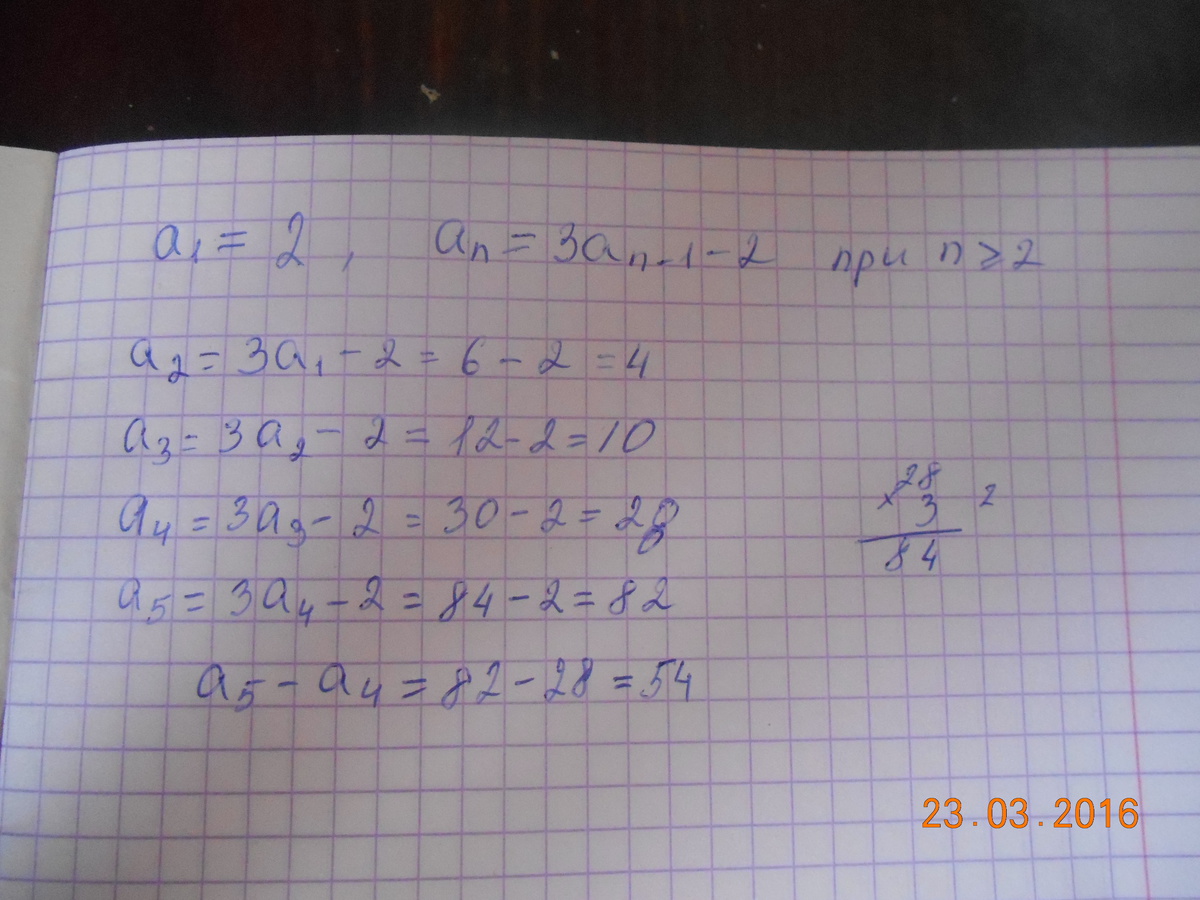 a₁ = 2 , aₙ = 3aₙ₋₁ - 2 при n ≥ 2
a₂ = 3a₁ - 2 = 6 - 2 = 4
a₃ = 3a₂ - 2 = 12 - 2 = 10
a₄ = 3a₃ - 2 = 30 - 2 = 28
a₅ = 3a₄ - 2 = 84 - 2 = 82
a₅ - a₄ = 82 - 28 = 54
28
× 3 2
84
23.03.2016